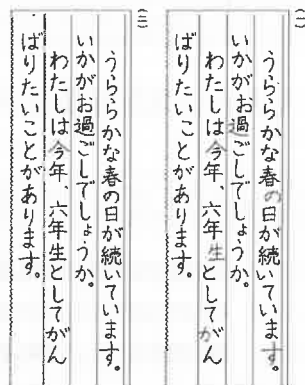 (一)
うららかな春の日が続いています。
いかがお過ごしでしょうか。
わたしは今年、六年生としてがん
ばりたいことがあります。
(二)
うららかな春の日が続いています。
いかがお過ごしでしょうか。
わたしは今年、六年生としてがん
ばりたいことがあります。